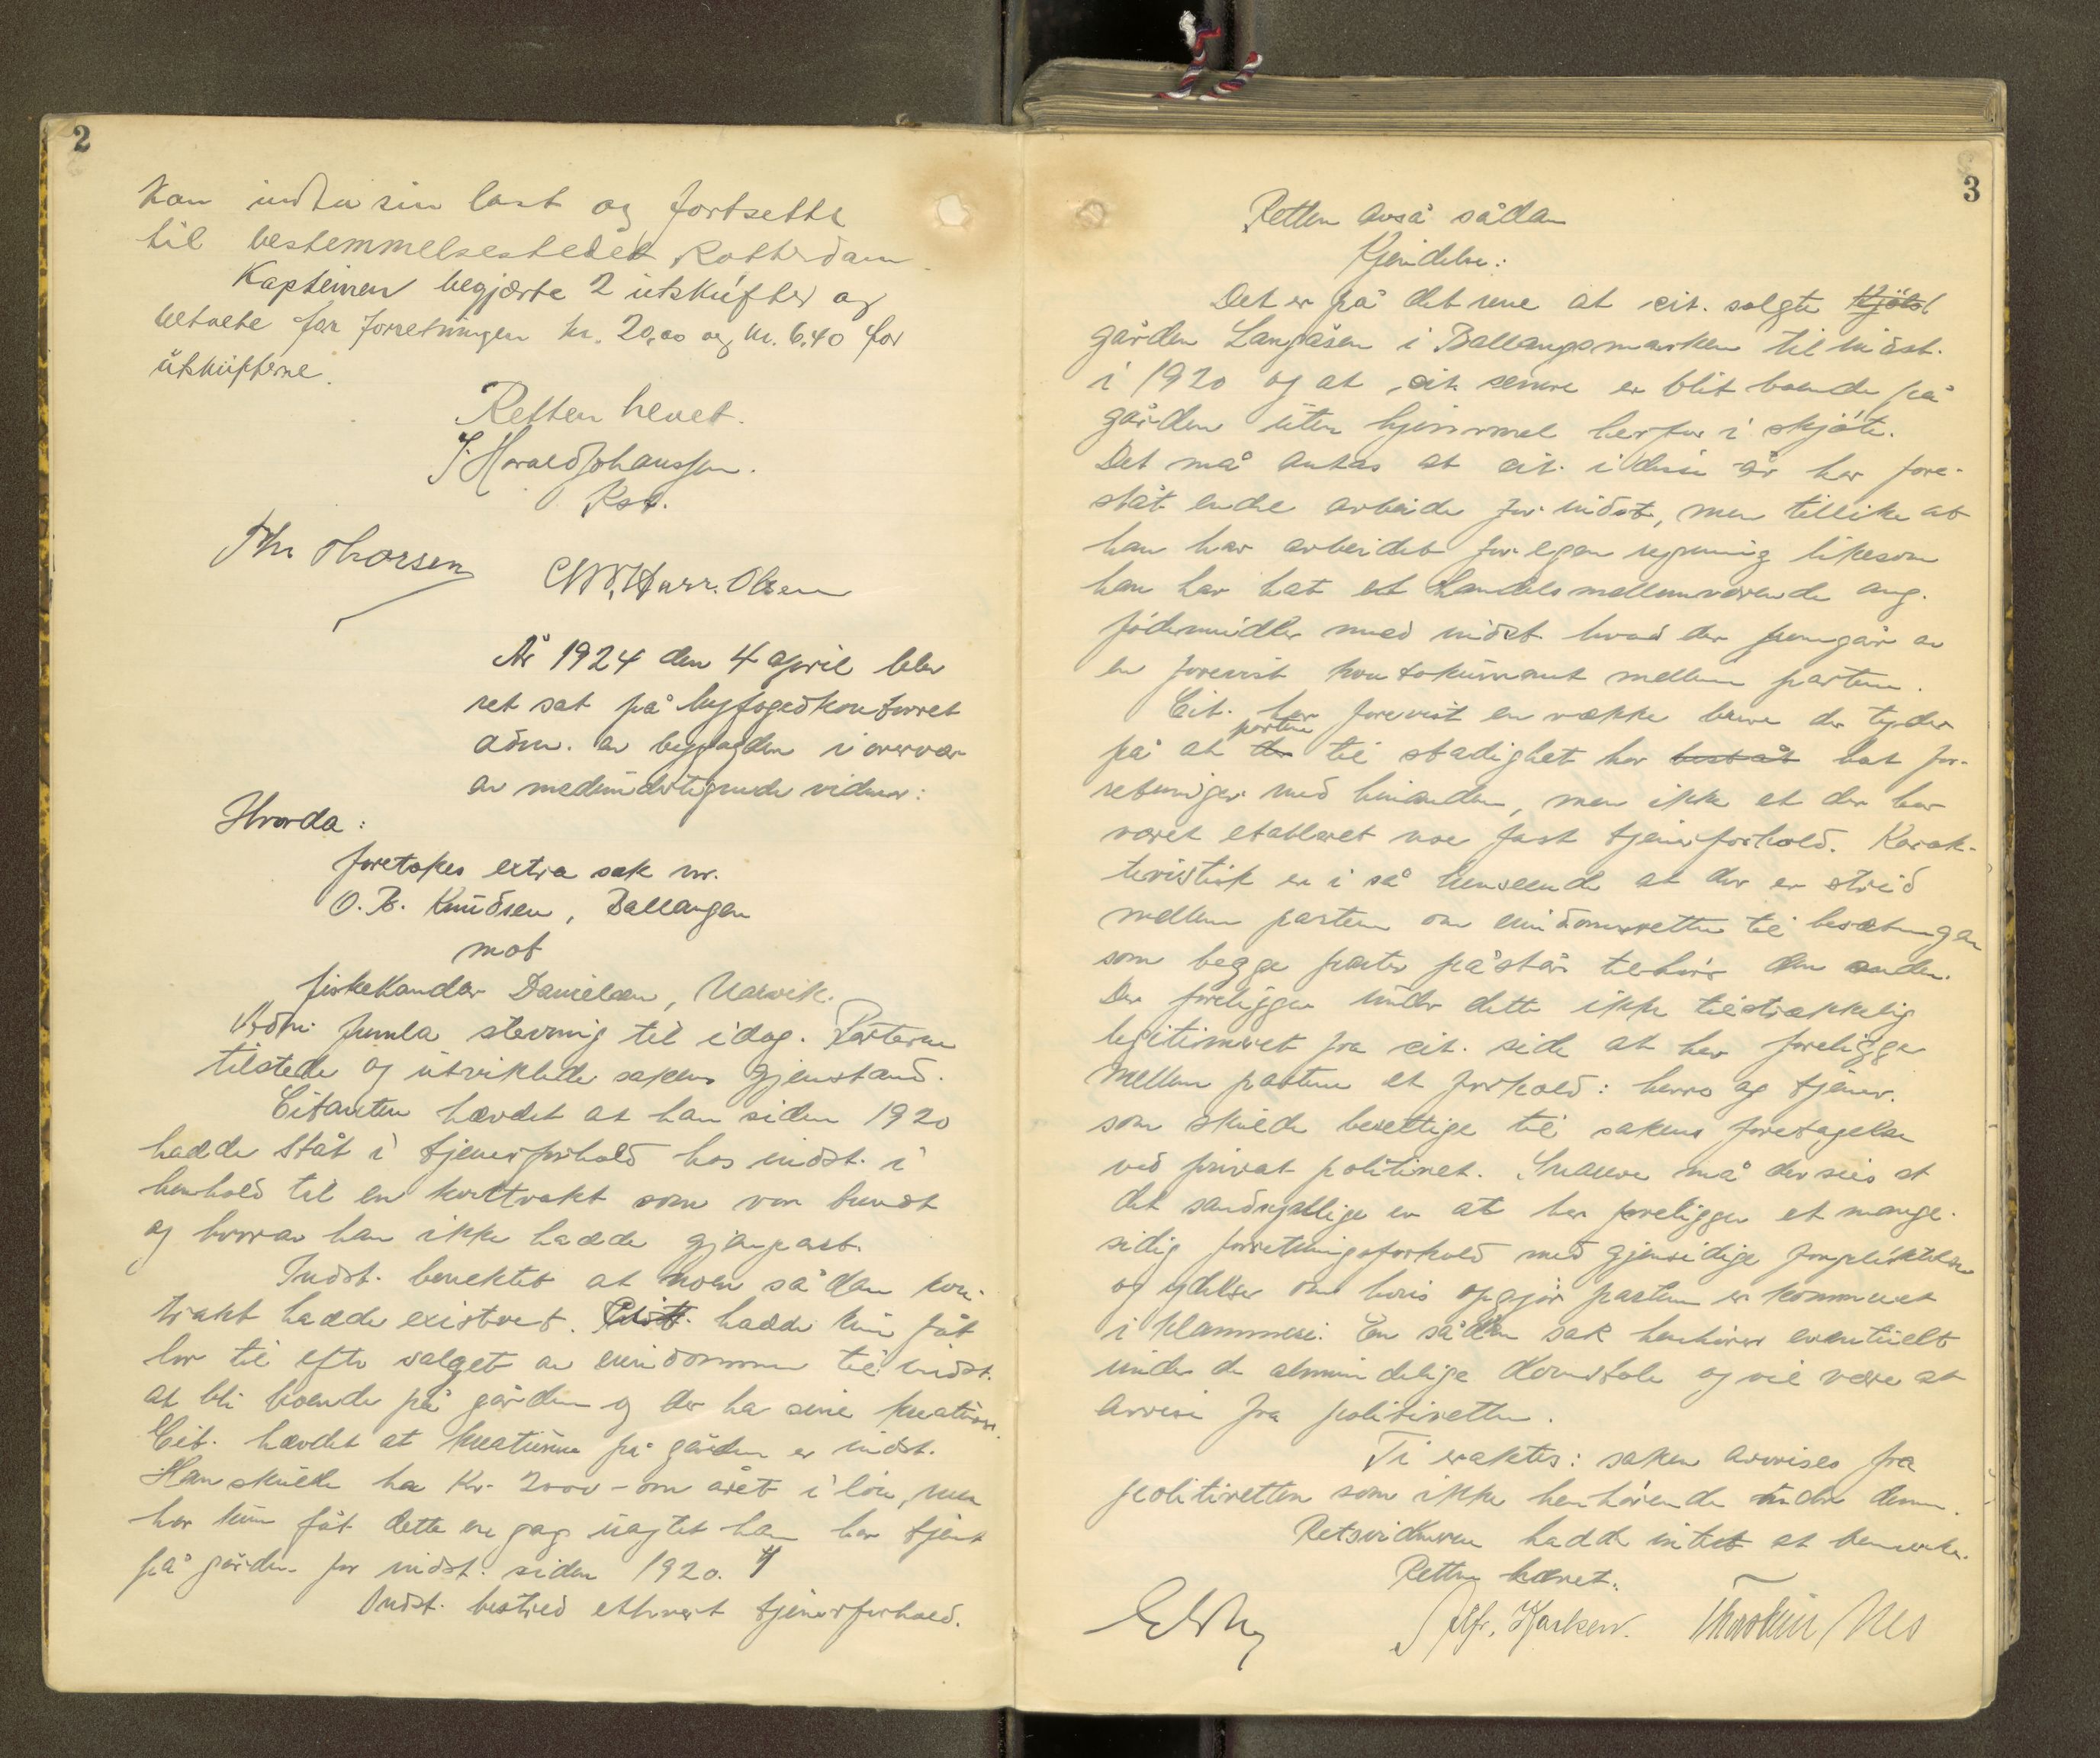 2
kan indta sin last og fortsette
til bestemmelsesstedet Rotterdam.
Kapteinen begjærte 2 utskrifter og
betalte for forretningen kr. 20,00 og kr. 6,40 for
utskrifterne.
Retten hevet.
J. Harald Johanssen.
Kst.
Thr Thorsen
Chr. Harr. Olsen
År 1924 den 4 april blev
ret sat på byfogedkontoret
adm. av byfogden i overvær
av medundertegnede vidner:
Hvorda:
foretokes extra sak nr.
O. B. Knudsen, Ballangen
mot
fiskehandler Danielsen, Narvik.
Adm. fremla stevning til idag. Parterne
tilstede og utviklede sakens gjenstand.
Citanten hævdet at han siden 1920
hadde ståt i tjenerforhold hos indst. i
henhold til en kontrakt som var brendt
og hvorav han ikke hadde gjenpart.
Indst. benektet at noen sådan kon-
trakt hadde existeret. Cit. hadde kun fåt
lov til efter salget av eiendommen til indst.
at bli boende på gården og der ha sine kreaturer.
Cit. hævdet at kreaturene på gården er indst.
Han skulde ha Kr. 2000 - om året i løn, men
har kun fåt dette en gag uagtet han har tjent
på gården for indst. siden 1920.
Indst. bestred ethvert tjenerforhold.
3
Retten avsa sådan
Kjendelse:
Det er på det rene at cit. solgte
gården Langåsen i Ballangsmarken til indst.
i 1920 og at cit. senere er blit boende på
gården uten hjemmel herfor i skjøte.
Det må antas at cit. i disse år har fore-
ståt endel arbeide for indst., men tillike at
han har arbeidet for egen regning likesom
han har hat et handelsmellemværende ang.
födemidler med indst. hvad der fremgår av
en forevist kontokurant mellem partene.
Cit. har forevist en række breve der tyder
på at partene til stadighet har bestått hat for-
retninger med hinanden, men ikke at der har
været etableret noe fast tjenerforhold. Karak-
teristisk er i så henseende at der er strid
mellem partene om eiendomsretten til besætningen
som begge parter påstår tilhører den anden.
Der foreligger under dette ikke tilstrækkelig
legitimeret fra cit. side at her foreligger
mellem partene et forhold: herre og tjener.
som skulde berettige til sakens foretagelse
ved privat politiret. Snarere må der sies at
det sandsynllige er at her foreligger et mange-
sidig forretningsforhold med gjensidige forpliktelser
og ydelser om hvis opgjör partene er kommet
i klammeri. En sådan sak henhører eventuelt
under de almindelige domstole og vil være at
avvise fra politiretten.
Ti eraktes: saken avvises fra
politiretten som ikke henhörende under denne.
Retsvidnerne hadde intet at bemerke.
Retten hævet.
Alfr. Karlsen. Thorstein Nes